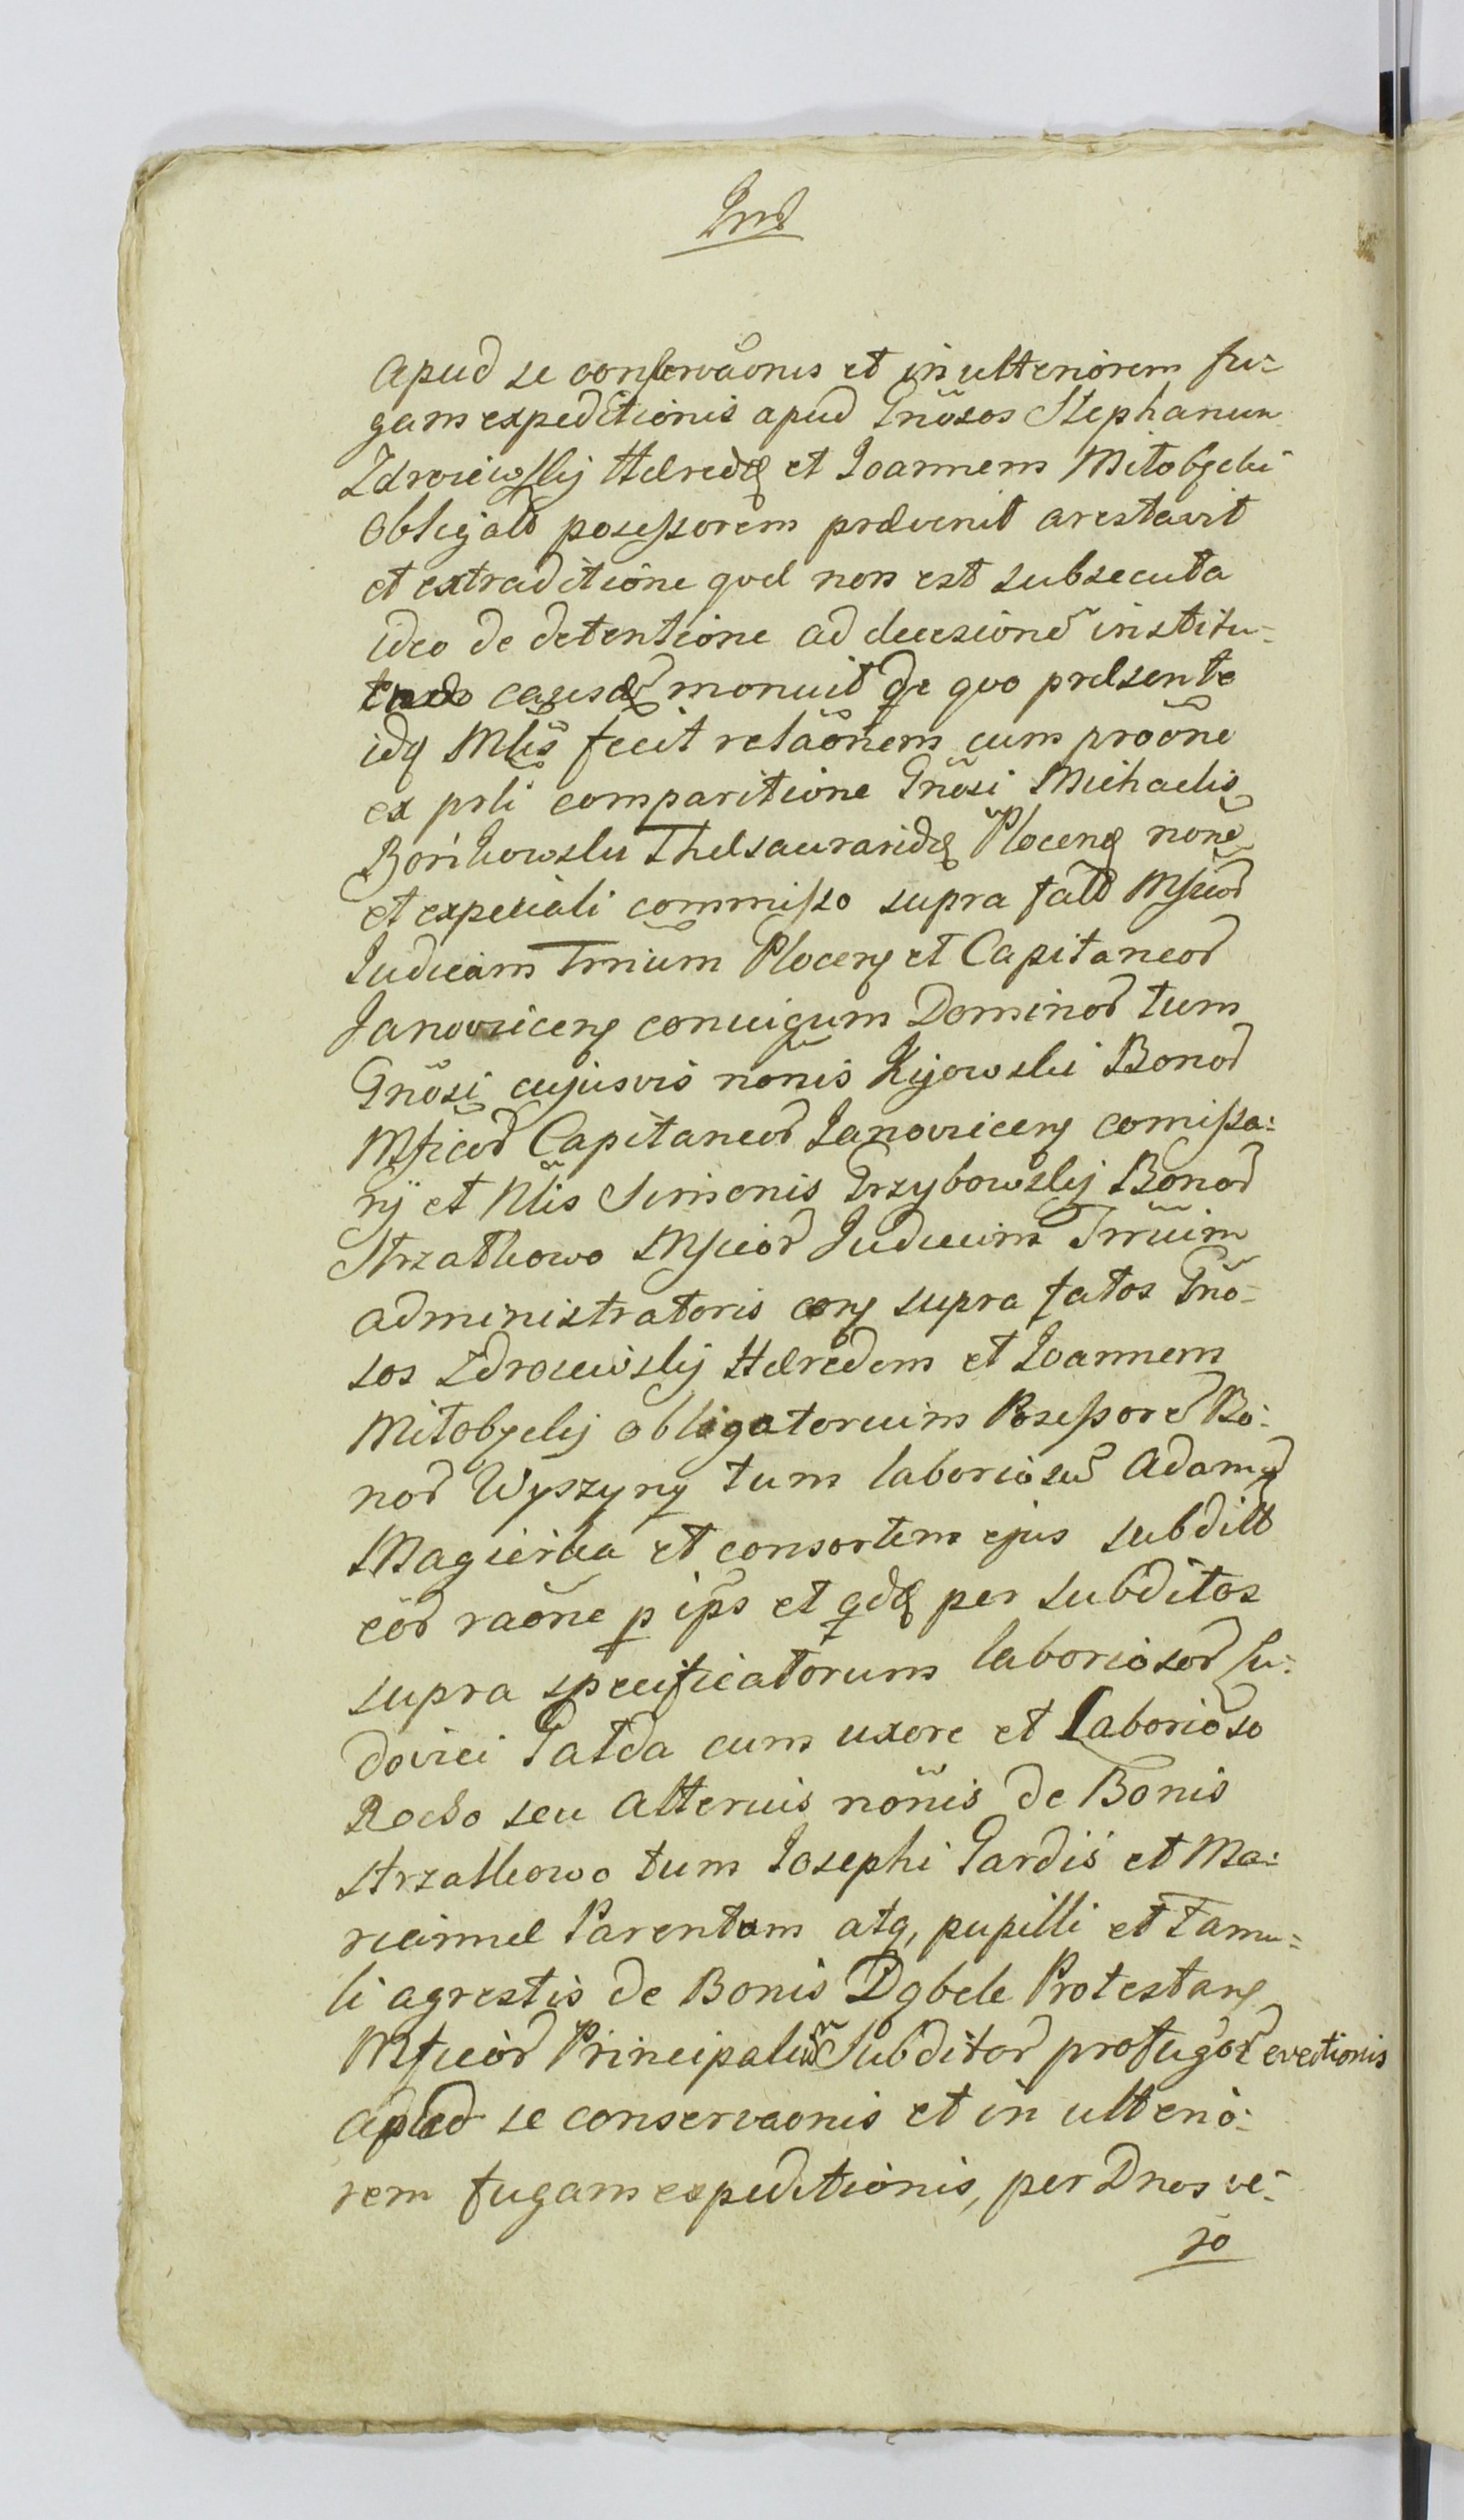 apud se conservãonis et in ulteriorem fu-
gam expeditionis apud Gnõsos Stephanum
Zdroiewskij Hæred et Joannem Mitobzcki
obligat posessorem prævenit arestavit
et extraditione qvæ non est subsecuta
ideo de detentione ad decesionẽ institu-
causas monuit de qvo præsente
idq Mlis fecit relãonem cum proõne
ex prli comparitione Gnõsi Michaelis
Borikowski Thesaurarid Plocens none
et expeciali commisso supra fatt Mficor
Judicum Trrium Plocens et Capitaneor
Janoviecens coniugum Dominor tum
Gnõsi cujusvis nõnis Kijowski Bonor
Mficor Capitaneor Janoviecens comissa:
rij et Nlis Simonis Grzybowskij Bonor
Strzałkowo Mficor Judicum Trrium
administratoris cons supra fatos Gnõ-
sos Zdroiewskij Hæredem et Joannem
Mitobzckij obligatorium Posessorẽ Bo:
nor Wyszyny tum laboriosũ Adam
Magierka et consortem ejus subditt
eor raõne p ips et qd per subditos
supra specificatorum laboriosor Lu:
dovici Gałda cum uxore et Laborioso
Rocho seu alterius nõnis de Bonis
Strzałkowo tum Josephi Gardis et Ma:
riannæ Parentum atq, pupilli et Famu=
li agrestis de Bonis Dąbek Protestans
Mficor Principaliũ Subditor profugor evectionis
apud se conservaonis et in ulterio:
rem fugam expeditionis, per Dnos ve-
ro